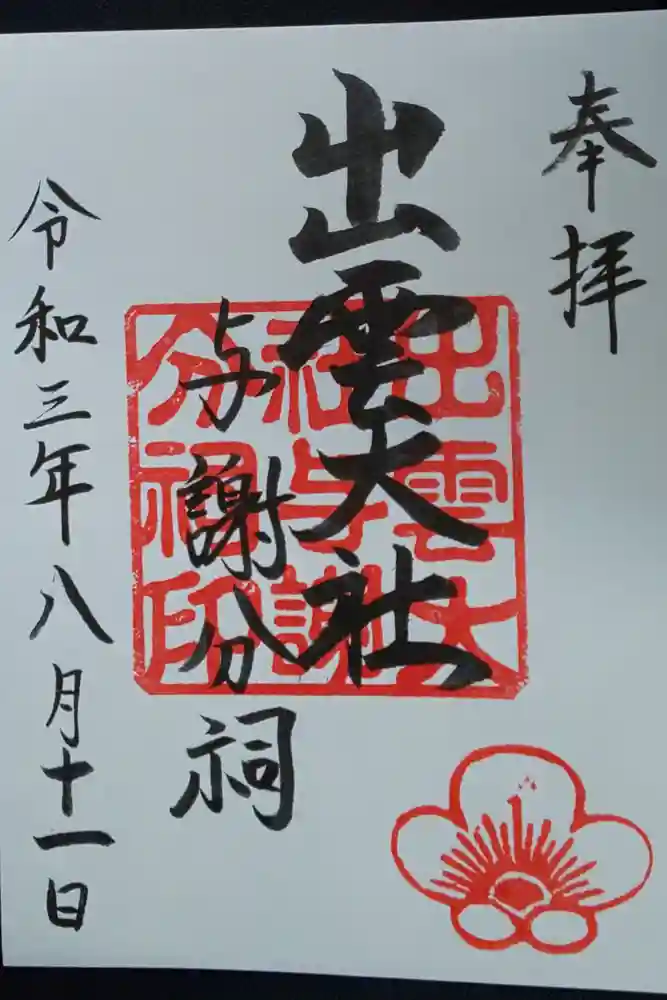 奉拝
出雲大社
与謝分祠
令和三年八月十一日
出雲大
社与謝
分祠印